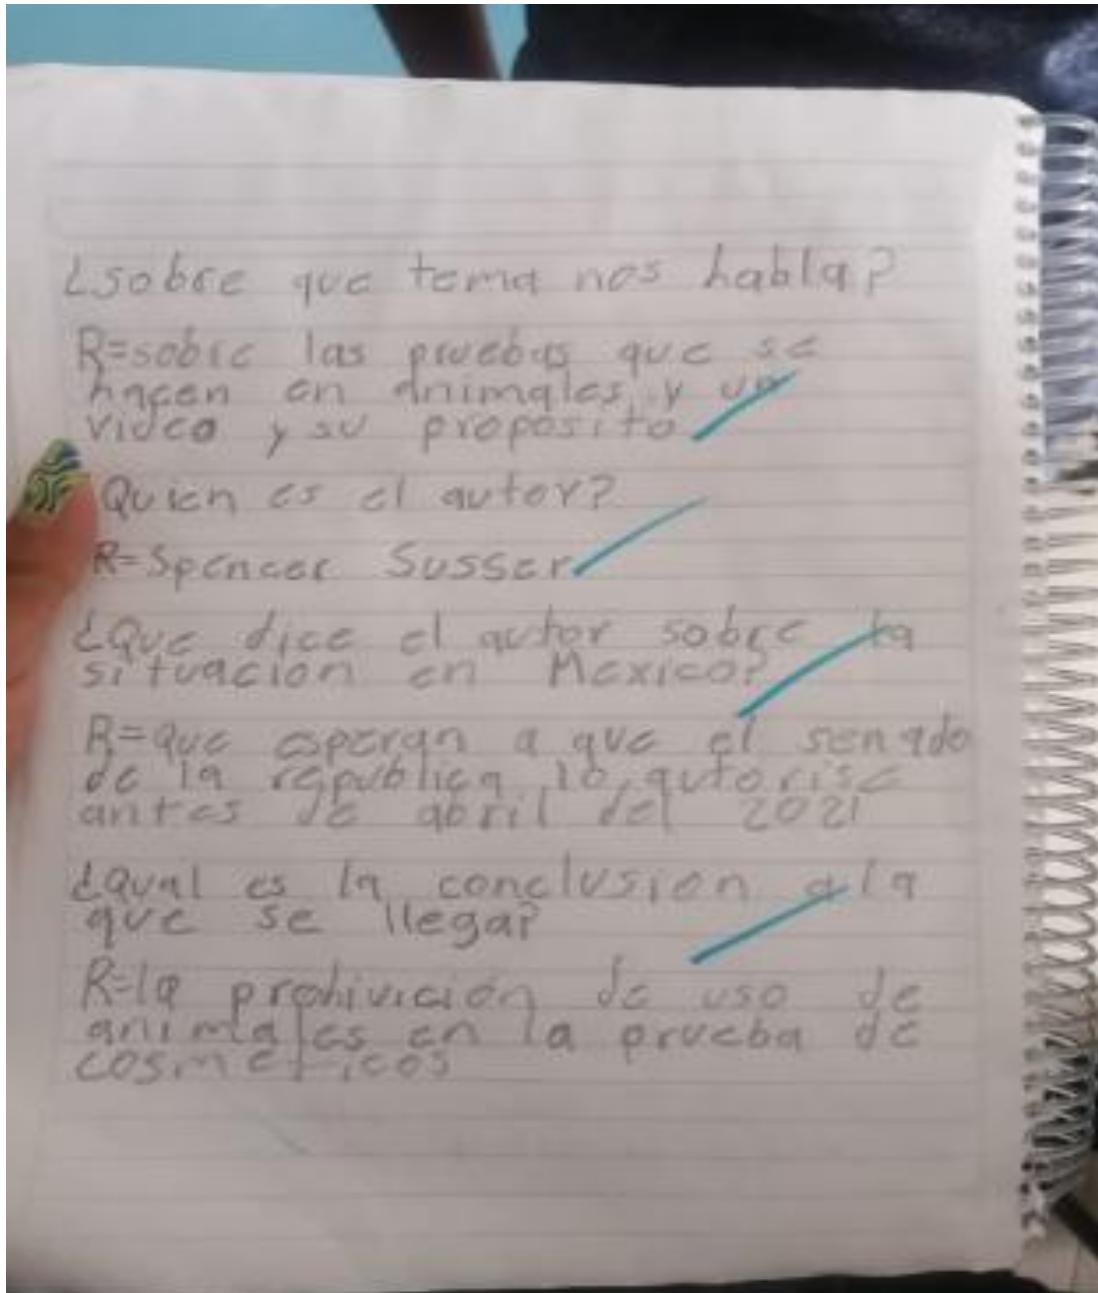 ¿sobre que tema nos habla?
R=sobre las pruebas que se
hacen en animales y un
video y su proposito
Quien es el autor?
R=Spencer Susser
¿Que dice el autor sobre la
situacion en Mexico?
R=que esperan a que el senado
de la republica lo autorise
antes de abril del 2021
¿Qual es la conclusion a la
que se llega?
R=la prohivición de uso de
animales en la prueba de
cosmeticos